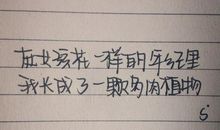 在女孩花一样的年纪里
我长成了一颗多肉植物